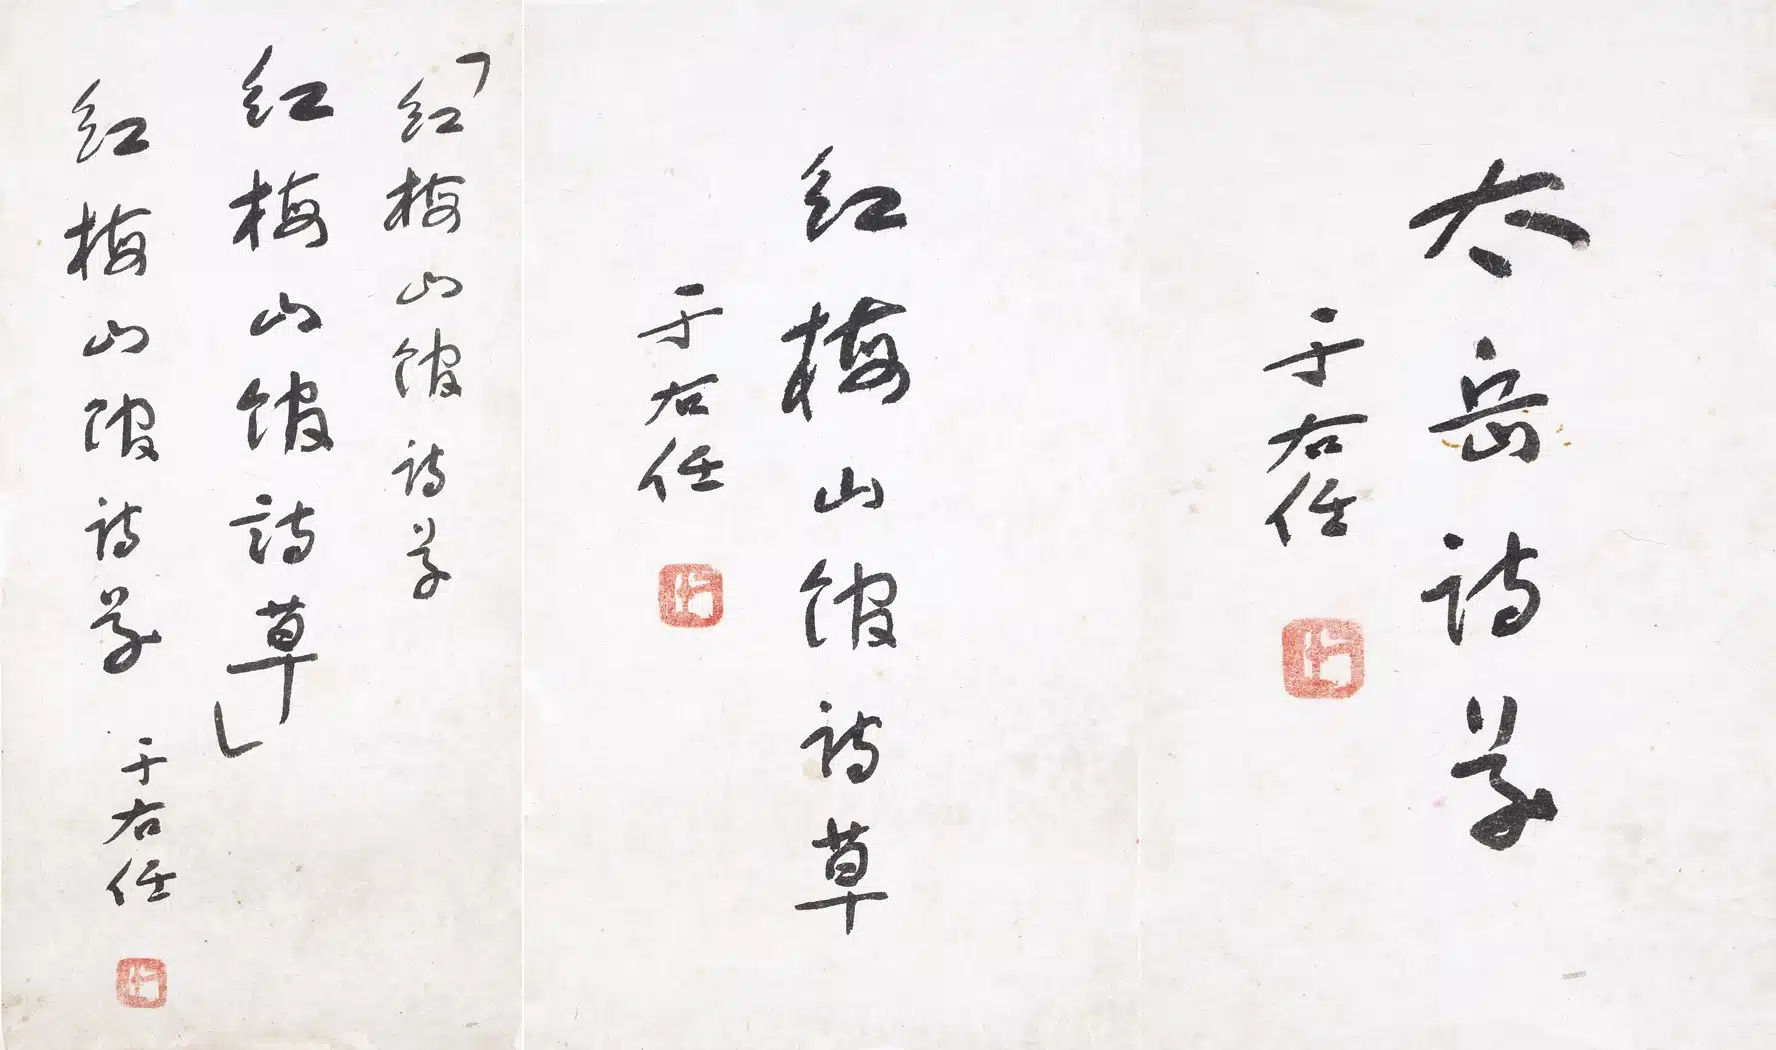 太岳詩草
于右任
紅梅山館詩草
于右任
「紅梅山館詩草
紅梅山館詩草」
紅梅山館詩草
于右任